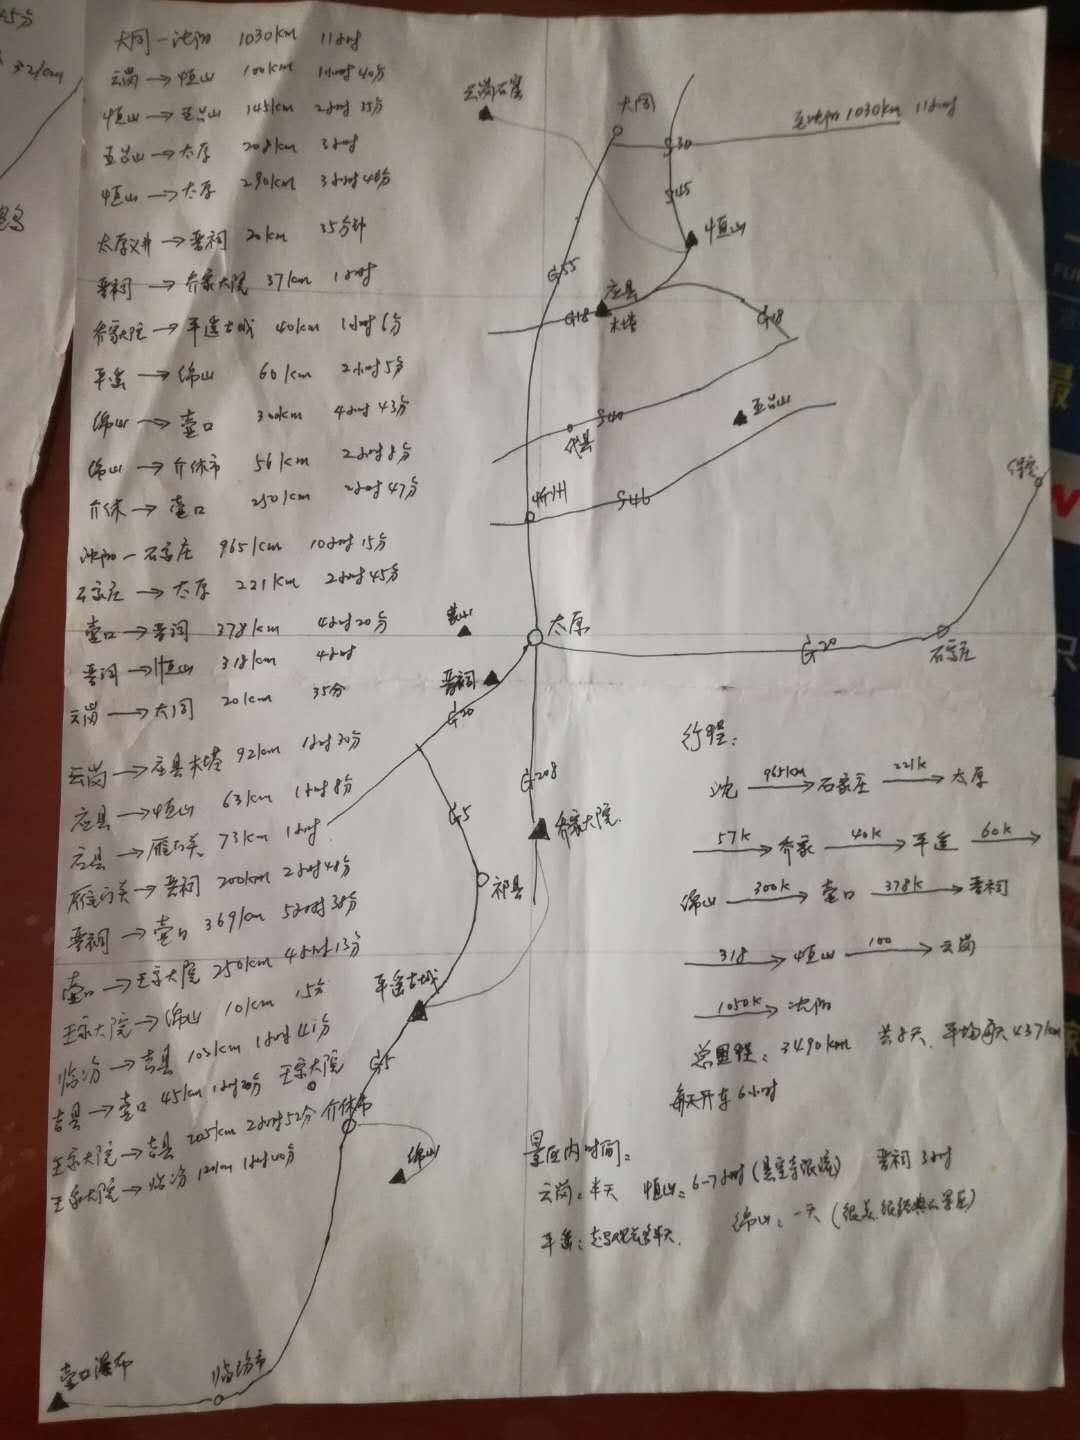 大同—沈阳 1030km 11小时
云岗→恒山 100km 1小时40分
恒山→五台山 145km 2小时35分
五台山→太原 208km 3小时
恒山→太原 290km 3小时40分
太原义井→晋祠 20km 35分钟
晋祠→乔家大院 37km 1小时
乔家大院→平遥古城 40km 1小时6分
平遥→绵山 60km 2小时5分
绵山→壶口 300km 4小时43分
绵山→介休市 56km 2小时8分
介休→壶口 250km 2小时47分
沈阳—石家庄 965km 10小时15分
石家庄→太原 221km 2小时45分
壶口→晋祠 378km 4小时20分
晋祠→恒山 318km 4小时
云岗→大同 20km 35分
云岗→应县木塔 92km 1小时30分
应县→恒山 63km 1小时8分
应县→雁门关 73km 1小时
雁门关→晋祠 200km 2小时48分
晋祠→壶口 369km 5小时38分
壶口→王家大院 250km 4小时13分
王家大院→绵山 10km 15分
临汾→吉县 103km 1小时41分
吉县→壶口 45km 1小时20分
王家大院→吉县 205km 2小时52分
王家大院→临汾 120km 1小时40分
云岗石窟
大同
至沈阳1030km 11小时
S30
S45
恒山
G55
应县
木塔
G18
G18
S40
代县
五台山
忻州
S46
保定
蒙山
太原
G20
石家庄
晋祠
G20
G208
乔家大院
G5
祁县
平遥古城
G5
王家大院
介休市
绵山
临汾市
壶口瀑布
行程:
沈 965km→石家庄 221k→太原
57k→乔家 40k→平遥 60k→
绵山 300k→壶口 378k→晋祠
318→恒山 100→云岗
1050k→沈阳
总里程:3490km 共8天、平均每天437km
每天开车6小时
景区内时间:
云岗:半天 恒山:6-7小时(悬空寺限流) 晋祠3小时
平遥: 半天. 绵山:一天(很美.很经典景区)